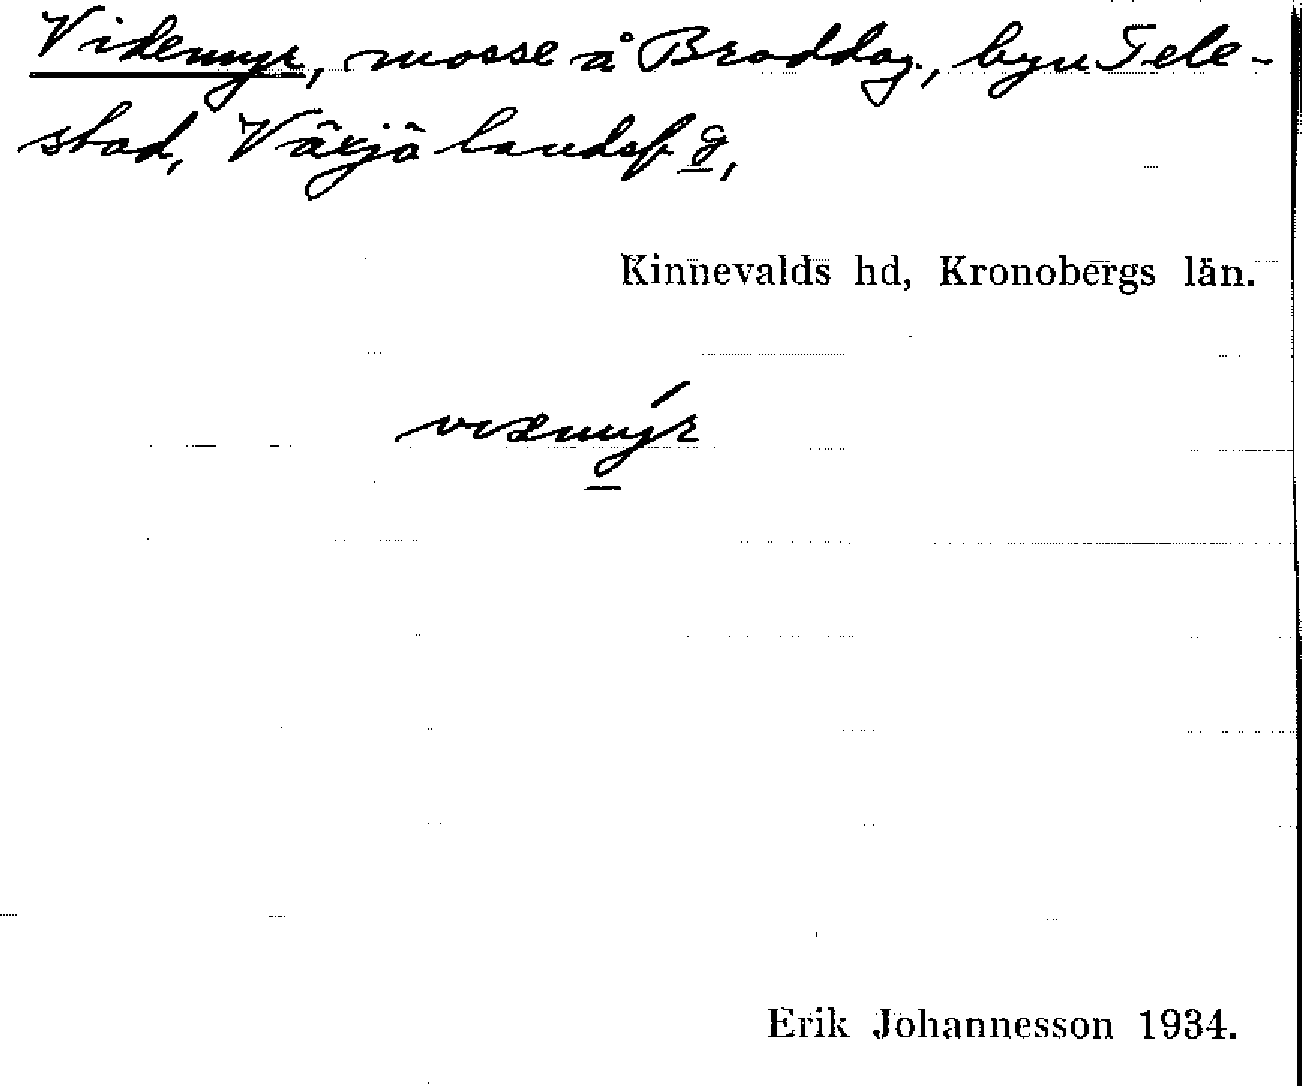 Videmyr, mosse å Broddag., byn Tele-
stad, Växjö landsf. g,
Kinnevalds hd, Kronobergs län.
Erik Johannesson 1934.